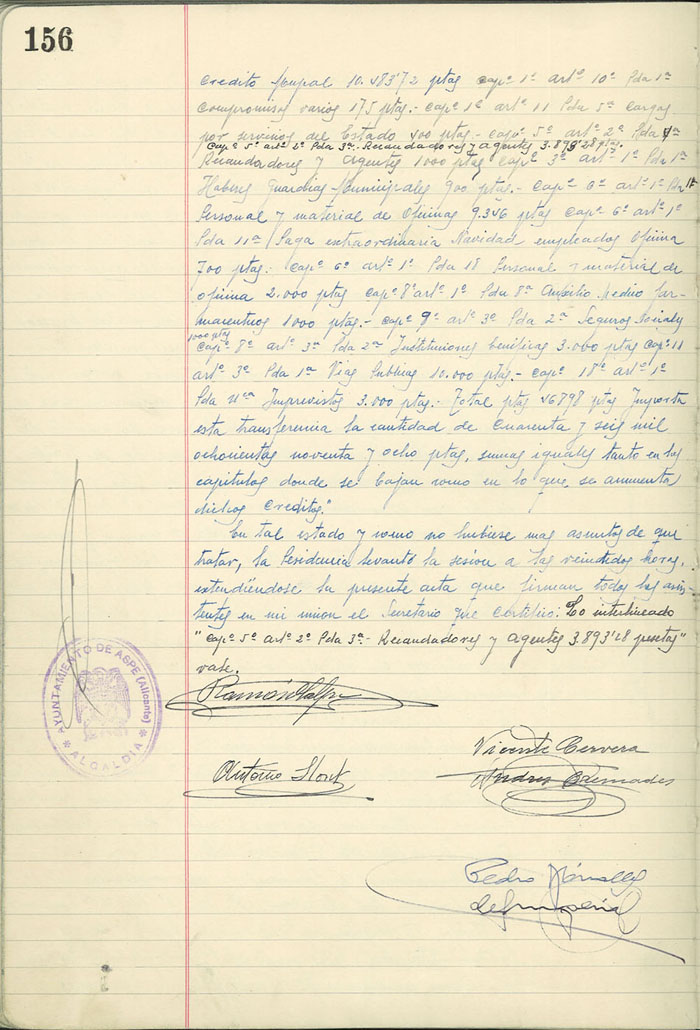 156
Credito Mupal 10.483'72 ptas capº 1º artº 10º Pda 1ª
Compromisos varios 175 ptas.- capº 1º artº 11 Pda 5ª Cargas
por servicios del Estado 400 ptas.- capº 5º artº 2º Pda 4ª
Capº 5º artº 2º Pda 3ª. Recaudadores y agentes 3.893'28 ptas.
Recaudadores y agentes 1000 ptas capº 3º artº 1º Pda 1ª
Haberes Guardias Municipales 900 ptas.- capº 6º artº 1º Pda 1ª
Personal y material de Oficinas 9.346 ptas capº 6º artº 1º
Pda 11ª Paga extraordinaria Navidad empleados oficina
700 ptas.- capº 6º artº 1º Pda 18 Personal y material de
oficina 2.000 ptas capº 8º artº 1º Pda 8ª Auxilio Medico far-
maceuticos 1000 ptas.- capº 9º artº 3º Pda 2ª Seguros Sociales
1000 ptas
capº 8º artº 3º Pda 2ª Instituciones Beneficas 3.000 ptas capº 11
artº 3º Pda 1ª Vias Publicas 10.000 ptas.- capº 18º artº 1º
Pda 4ª Imprevistos 3.000 ptas.- Total ptas 46898 ptas Importa
esta transferencia la cantidad de cuarenta y seis mil
ochocientas noventa y ocho ptas, sumas iguales tanto en los
capitulos donde se bajan como en lo que se aumenta
dichos creditos."
En tal estado y como no hubiese mas asuntos de que
tratar, la Presidencia levantó la sesión a las veintidos horas,
extendiéndose la presente acta que firman todos los asis
tentes en mi union el Secretario que certifico: Lo interlineado
"Capº 5º artº 2º Pda 3ª.- Recaudadores y agentes 3.893'28 pesetas"
vale.
AYUNTAMIENTO DE ASPE (Alicante)
ALCALDIA
Vicente Cervera
Antonio
Andres Cremades
Pedro